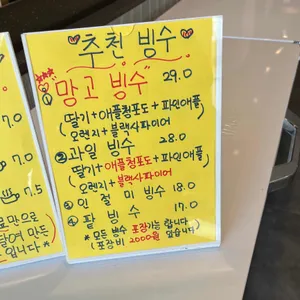 추천 빙수
① 망고 빙수 29.0
(딸기+애플청포도+파인애플
오렌지+블랙사파이어)
② 과일 빙수 28.0
(딸기+애플청포도+파인애플
오렌지+블랙사파이어
③ 인절미 빙수 18.0
④ 팥 빙수 17.0
* 모든 빙수 포장가능 합니다
(포장비 2000원 있습니다)
7.0
7.0
7.5
만으로
만든
입니다*